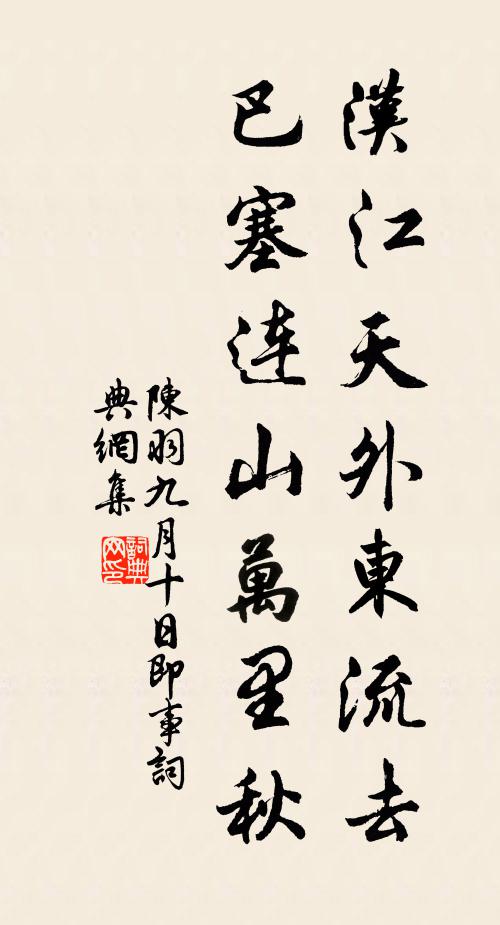 漢江天外東流去
巴塞連山萬里秋
陳羽九月十日即事詞
典網集
詞典
网印